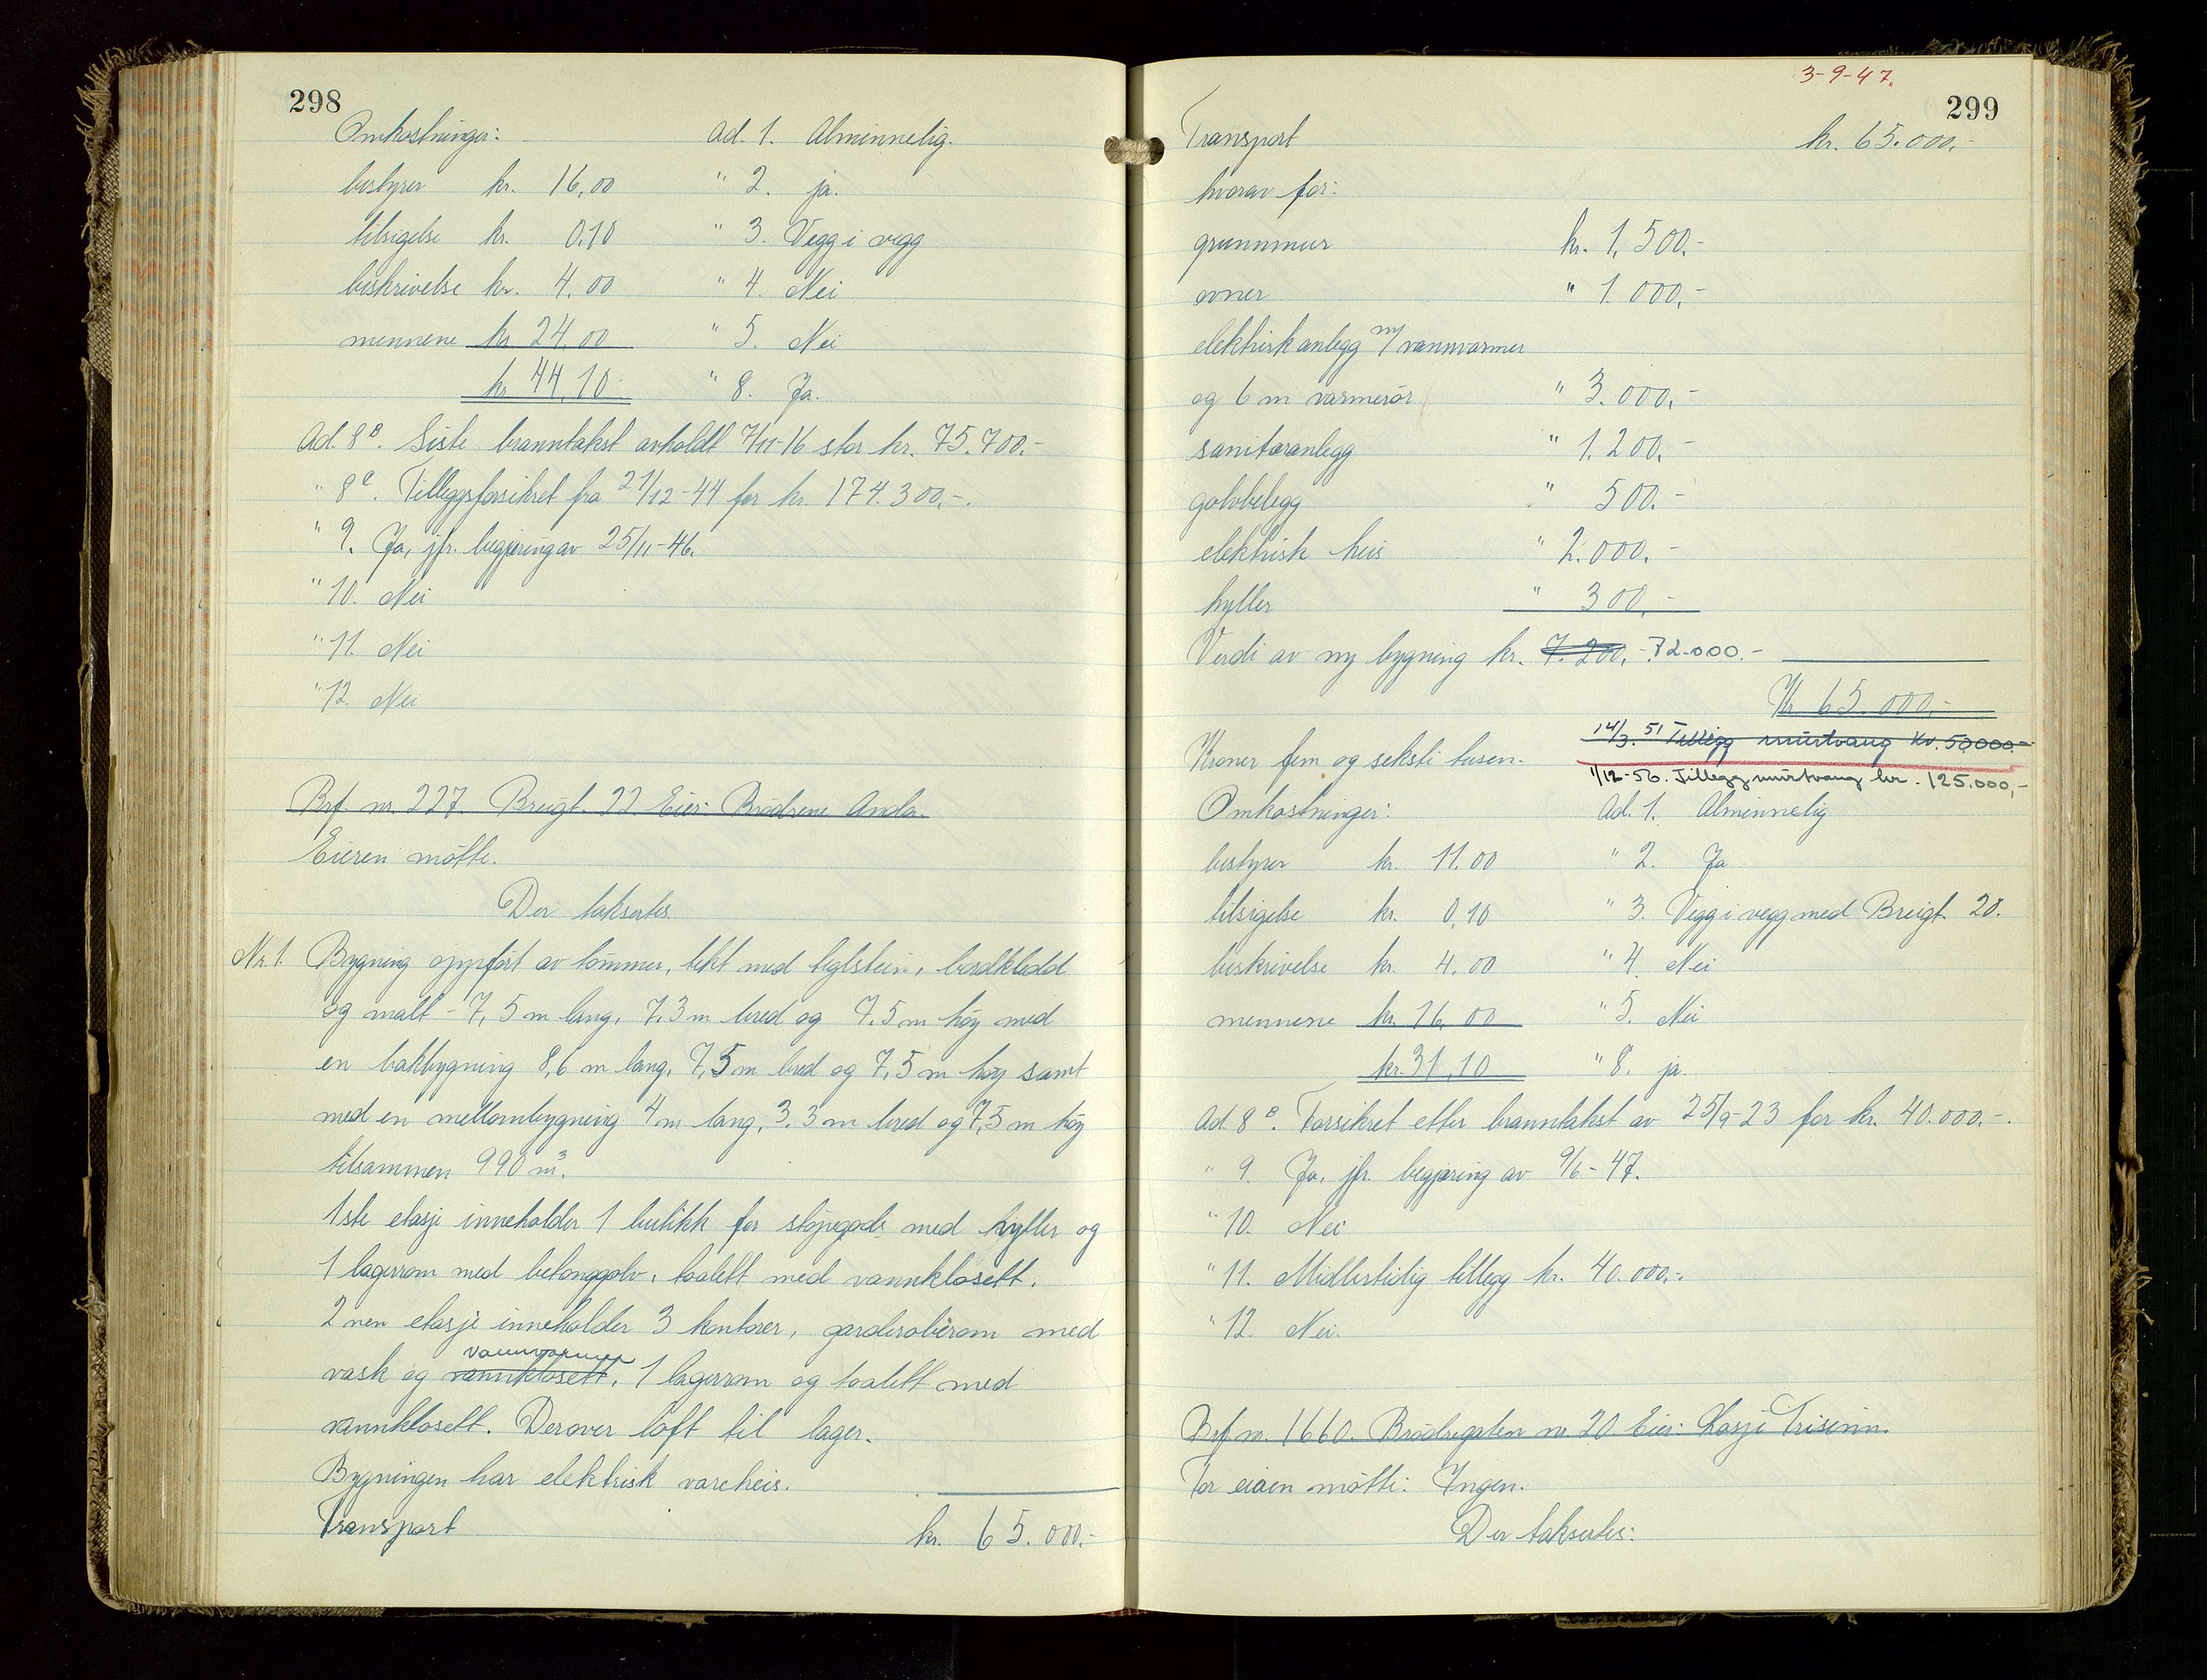 298
Omkostninger: Ad. 1. Alminnelig.
bestyrer kr. 16,00 " 2. ja.
tilsigelse kr. 0,10 " 3. Vegg i vegg
beskrivelse kr. 4,00 " 4. Nei
mennene kr. 24,00 " 5. Nei
kr. 44,10 " 8. Ja.
Ad. 8B. Siste branntakst avholdt 7/11-16 stor kr. 75.700.-
" 8C. Tilleggsforsikret fra 21/12-44 for kr. 174.300,-.
" 9. Ja, jfr. begjæring av 25/11-46.
" 10. Nei
" 11. Nei
" 12. Nei
Brf. nr. 227. Breigt. 22 Eier: Brødrene Anda.
Eieren møtte.
Der takseertes
Nr. 1. Bygning oppført av tømmer, tekt med teglstein, bordkledd
og malt - 7,5 m lang, 7,3 m bred og 7,5 m høy med
en bakbygning 8,6 m lang, 7,5 m bred og 7,5 m høy samt
med en mellombygning 4 m lang, 3,3 m bred og 7,5 m høy
tilsammen 990 m³.
1ste etasje inneholder 1 butikk for støpegods med hyller og
1 lagerrom med betonggolv, toalett med vannklosett.
2nen etasje inneholder 3 kontorer, garderoberom med
vannvarmer
vask og vannklosett, 1 lagerrom og toalett med
vannklosett. Derover loft til lager.
Bygningen har elektrisk vareheis.
Transport kr. 65.000.-
3-9-47.
299
Transport kr. 65.000,-
hvorav for:
grunnmur kr. 1,500.-
ovner " 1.000,-
elektrisk anlegg m/ vannvarmer
og 6 m varmerør " 3.000,-
sanitæranlegg " 1.200,-
golvbelegg " 500.-
elektrisk heis " 2.000.-
hyller " 300,-
Verdi av ny bygning kr. 7.200,- 72.000.-
Kr. 65.000,-
14/3. 51 Tillegg murtvang Kr. 50000.-
Kroner fem og seksti tusen.
1/12-56. Tillegg murtvang kr. 125.000,-
Omkostninger: Ad. 1. Alminnelig
bestyrer kr. 11.00 " 2. Ja
tilsigelse kr. 0,10 " 3. Vegg i vegg med Breigt. 20.
beskrivelse kr. 4,00 " 4. Nei
mennene kr. 16,00 " 5. Nei
kr. 31,10 " 8. ja.
Ad. 8B. Forsikret etter branntakst av 25/9-23 for kr. 40.000.-.
" 9. Ja, jfr. begjæring av 9/6-47.
" 10. Nei
" 11. Midlertidig tillegg kr. 40.000,-.
" 12. Nei.
Brf. nr. 1660. Breibregaten nr. 20. Eier: Kasje Trisinn.
For eieren møtte: Ingen.
Der taksertes: